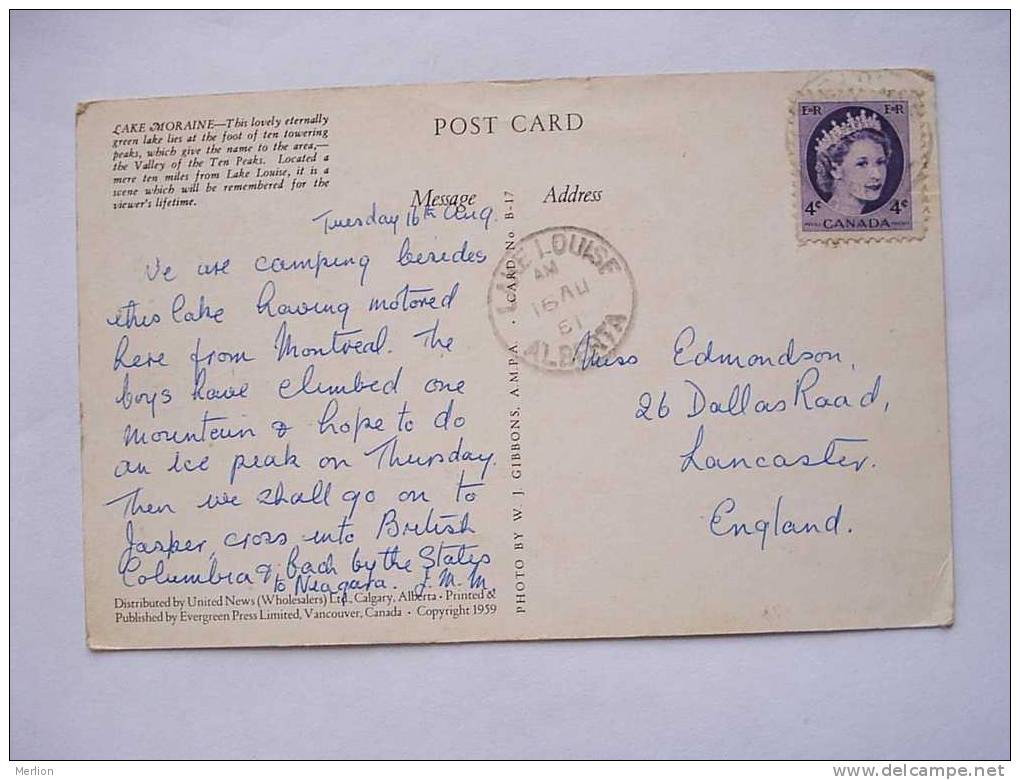 LAKE MORAINE—This lovely eternally
green lake lies at the foot of ten towering
peaks, which give the name to the area,—
the Valley of the Ten Peaks. Located a
mere ten miles from Lake Louise, it is a
scene which will be remembered for the
viewer's lifetime.
POST CARD
Message
Address
Tuesday 16th Aug.
We are camping besides
this lake having motored
here from Montreal. The
boys have climbed one
mountain & hope to do
an ice peak on Thursday.
Then we shall go on to
Jasper, cross into British
Columbia & back by the States
to Niagara. J.M.M.
Distributed by United News (Wholesalers) Ltd., Calgary, Alberta · Printed &
Published by Evergreen Press Limited, Vancouver, Canada · Copyright 1959
PHOTO BY W. J. GIBBONS, A.M.P.A. · CARD No B-17
LAKE LOUISE
AM
16 AU
61
ALBERTA
E II R
E II R
4c
4c
CANADA
Miss Edmondson,
26 Dallas Road,
Lancaster.
England.
Merlion
delcampe.net